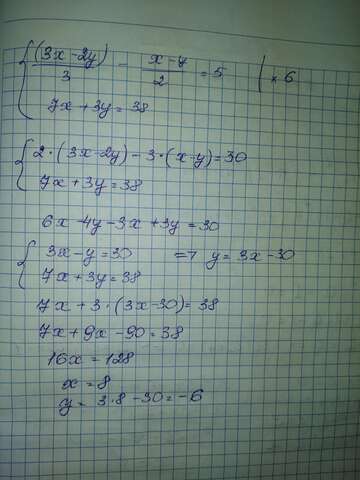 (3x-2y)/3 - (x-y)/2 = 5 | × 6
7x + 3y = 38
2·(3x-2y) - 3·(x-y) = 30
7x + 3y = 38
6x - 4y - 3x + 3y = 30
3x - y = 30 => y = 3x - 30
7x + 3y = 38
7x + 3·(3x-30) = 38
7x + 9x - 90 = 38
16x = 128
x = 8
y = 3·8 - 30 = -6